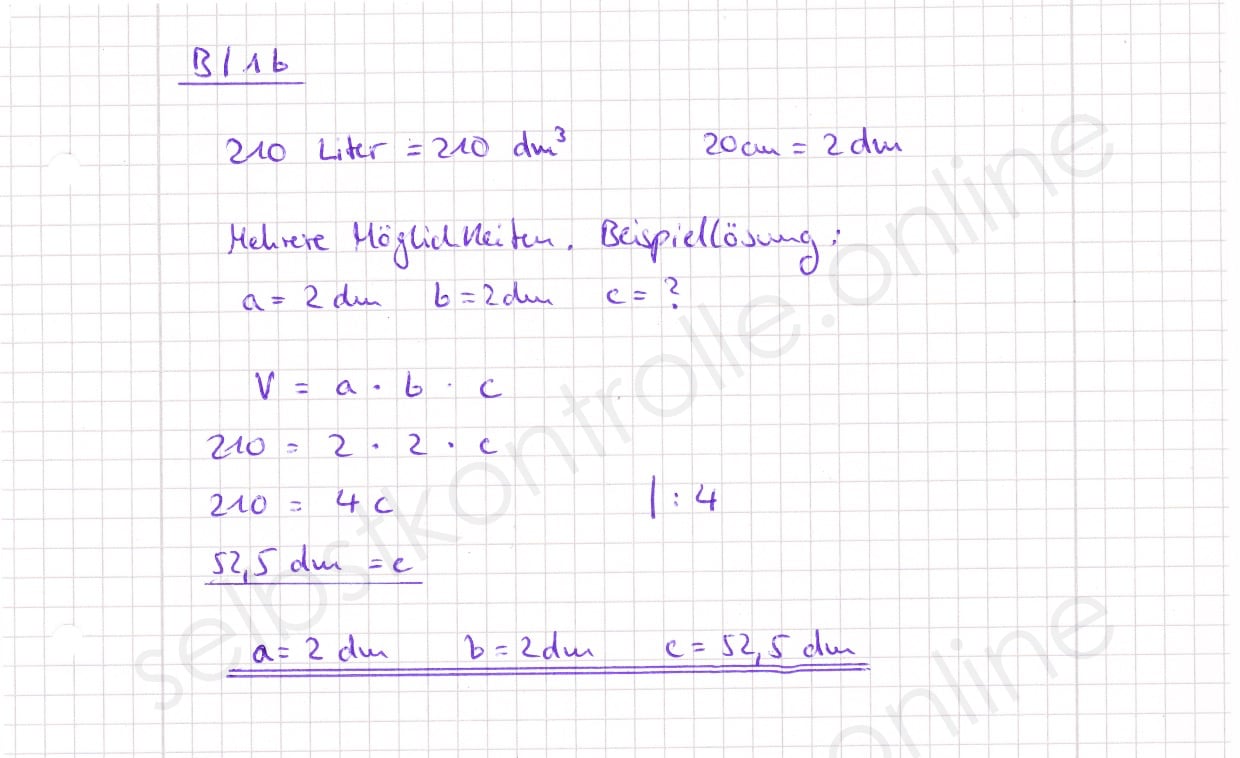 B/1b
210 Liter = 210 dm³ 20cm = 2dm
Mehrere Möglichkeiten. Beispiellösung:
a = 2 dm b = 2dm c = ?
V = a · b · c
210 = 2 · 2 · c
210 = 4c | : 4
52,5 dm = c
a = 2 dm b = 2dm c = 52,5 dm
selbstkontrolle.online
online